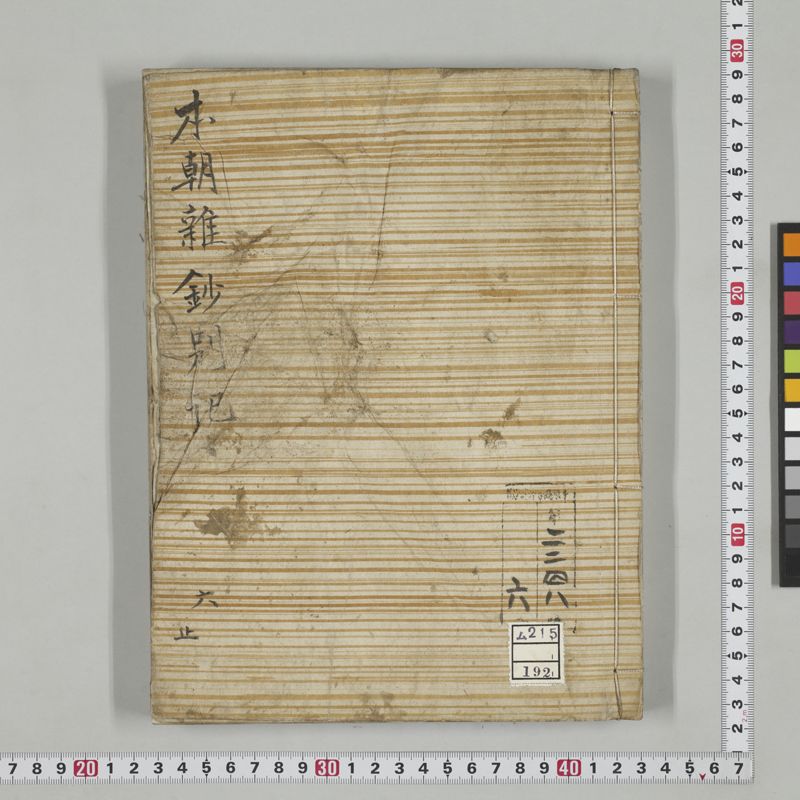 本朝雜鈔別記
六
止
二二四八
六
ム215
1
192
2
1
30
9
8
7
6
5
4
3
2
1
20
9
8
7
6
5
4
3
2
1
10
9
8
7
6
5
4
3
2
1
7 8 9 20 1 2 3 4 5 6 7 8 9 30 1 2 3 4 5 6 7 8 9 40 1 2 3 4 5 6 7